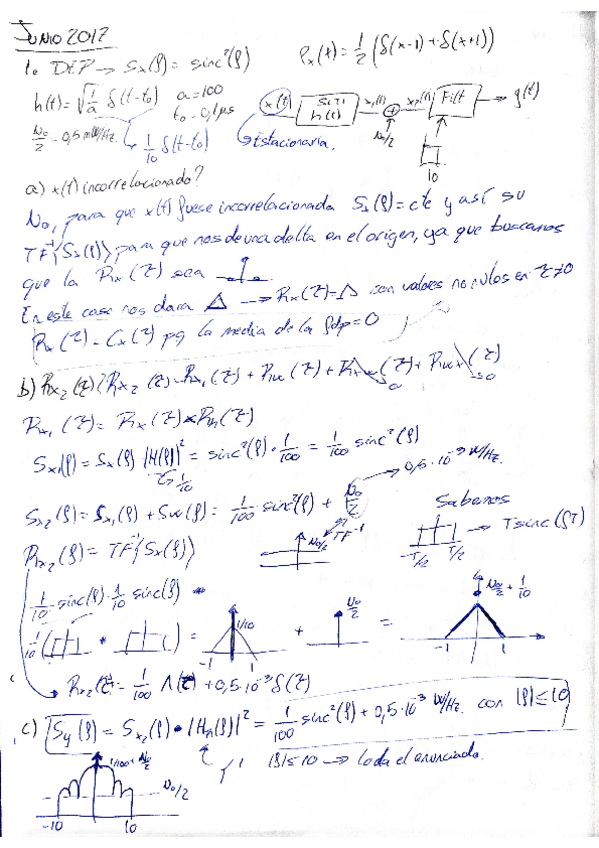 JUNIO 2017
1. DEP → Sx(f) = sinc²(f)
Px(t) = 1/2 (δ(x-1) + δ(x+1))
h(t) = √(1/a) δ(t-t₀)
a = 100
t₀ = 0,1µs
N₀/2 = 0,5 mW/Hz
1/10 δ(t-t₀)
x(t)
h(t)
x₁(t)
x₂(t)
Filt
y(t)
N₀/2
10
Estacionaria.
a) x(t) incorrelacionado?
No, para que x(t) fuese incorrelacionada Sx(f) = cte y así su
TF⁻¹{Sx(f)} para que nos de una delta en el origen, ya que buscamos
que la Rx(τ) sea
En este caso nos dara Δ → Rx(τ) = Λ con valores no nulos en τ≠0
Rx(τ) = Cx(τ) pq la media de la fdp = 0
b) Rx₂(τ)? Rx₂(τ) = Rx₁(τ) + Rw(τ) + Rx₁w(τ) + Rwx₁(τ)
Rx₁(τ) = Rx(τ) * Rh(τ)
Sx₁(f) = Sx(f) |H(f)|² = sinc²(f) · 1/100 = 1/100 sinc²(f)
1/10
0,5·10⁻³ W/Hz.
Sx₂(f) = Sx₁(f) + Sw(f) = 1/100 sinc²(f) + N₀/2
Sabemos
Rx₂(f) = TF⁻¹{Sx(f)}
N₀/2
TF⁻¹
-T/2 T/2
→ Tsinc(fT)
1/10 sinc(f) · 1/10 sinc(f)
1/10
* ) =
1/10
-1 1
+
N₀/2
=
N₀/2 + 1/10
-1 1
Rx₂(τ) = 1/100 Λ(τ) + 0,5·10⁻³ δ(τ)
c) Sy(f) = Sx₂(f) · |Hn(f)|² = 1/100 sinc²(f) + 0,5·10⁻³ W/Hz. con |f| ≤ 10
1 |f| ≤ 10 → lo da el enunciado.
1/100 + N₀/2
N₀/2
-10 10